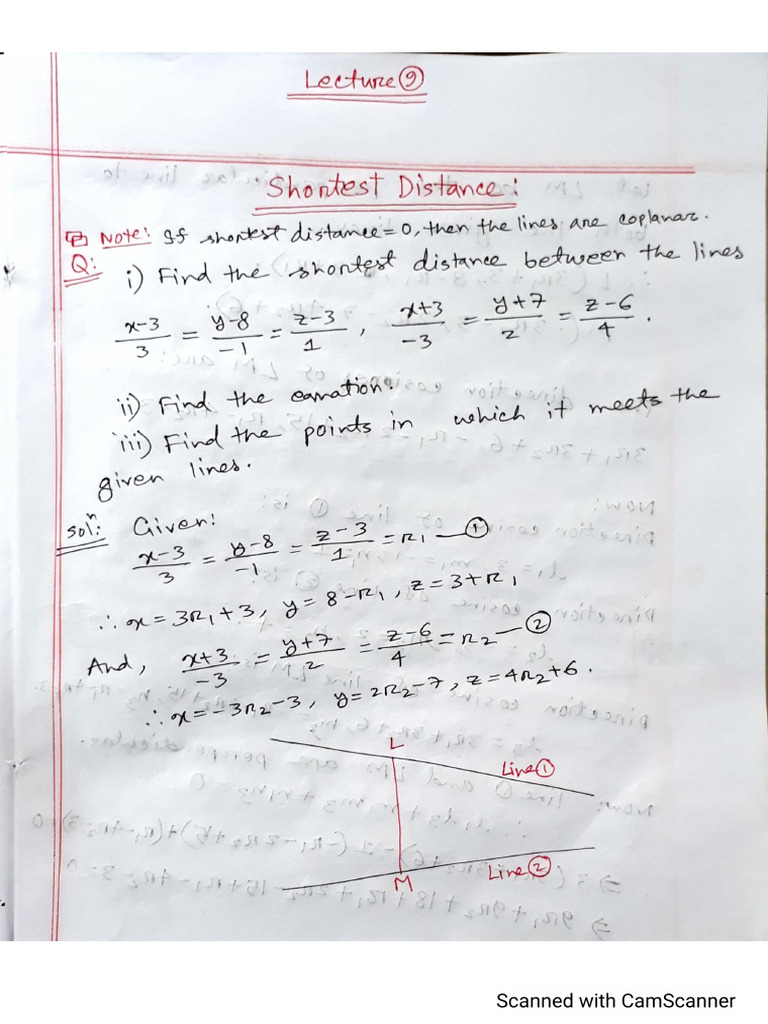 Lecture ⑨
Shortest Distance:
Note: If shortest distance = 0, then the lines are coplanar.
Q: i) Find the shortest distance between the lines
x-3/3 = y-8/-1 = z-3/1 , x+3/-3 = y+7/2 = z-6/4 .
ii) Find the eqnation.
iii) Find the points in which it meets the
given lines.
Solⁿ: Given:
x-3/3 = y-8/-1 = z-3/1 = r₁ — ①
∴ x = 3r₁+3, y = 8-r₁, z = 3+r₁
And, x+3/-3 = y+7/2 = z-6/4 = r₂ — ②
∴ x = -3r₂-3, y = 2r₂-7, z = 4r₂+6.
L
Line ①
Line ②
M
Scanned with CamScanner